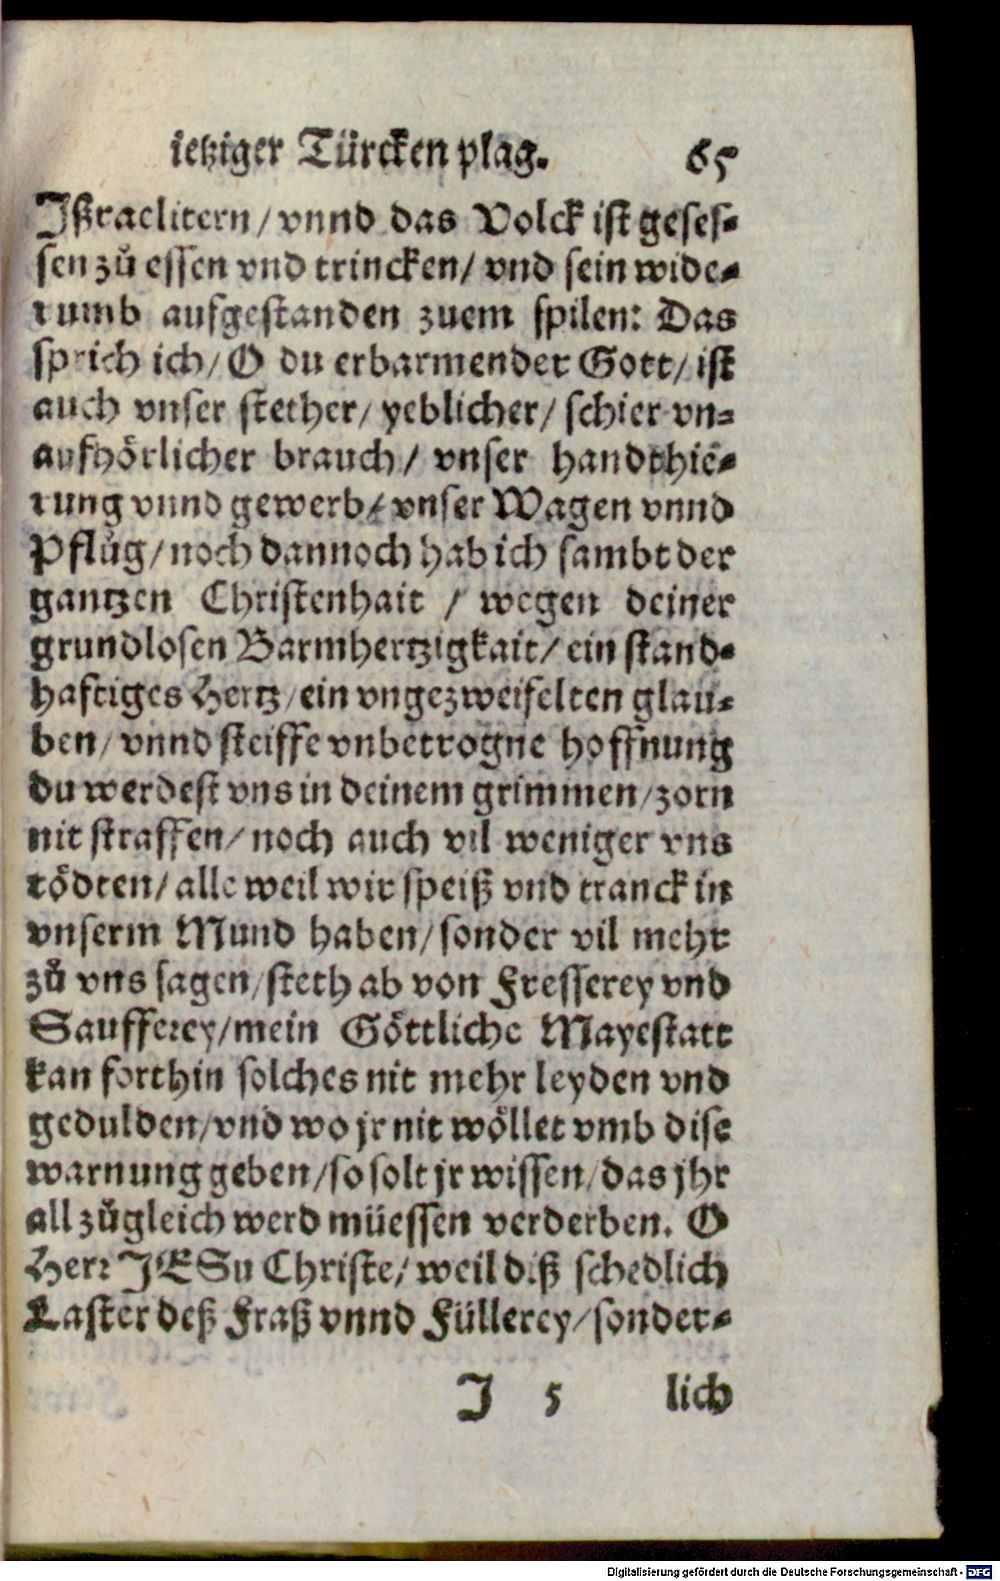 ietziger Türcken plag. 65
Jßraelitern / vnnd das Volck ist geses-
sen zů essen vnd trincken / vnd sein wide-
rumb aufgestanden zuem spilen: Das
sprich ich / O du erbarmender Gott / ist
auch vnser stether / yeblicher / schier vn-
aufhörlicher brauch / vnser handthie-
rung vnnd gewerb / vnser Wagen vnnd
Pflůg / noch dannoch hab ich sambt der
gantzen Christenhait / wegen deiner
grundlosen Barmhertzigkait / ein stand-
hafftiges Hertz / ein vngezweifelten glau-
ben / vnnd steiffe vnbetrogne hoffnung
du werdest vns in deinem grimmen / zorn
nit straffen / noch auch vil weniger vns
tödten / alle weil wir speiß vnd tranck in
vnserm Mund haben / sonder vil mehr
zů vns sagen / steth ab von Fresserey vnd
Saufferey / mein Göttliche Mayestatt
kan forthin solches nit mehr leyden vnd
gedulden / vnd wo jr nit wöllet vmb dise
warnung geben / so solt jr wissen / das jhr
all zůgleich werd müessen verderben. O
Herr JESu Christe / weil diß schedlich
Laster deß Fraß vnnd Füllerey / sonder-
J 5 lich
Digitalisierung gefördert durch die Deutsche Forschungsgemeinschaft - DFG